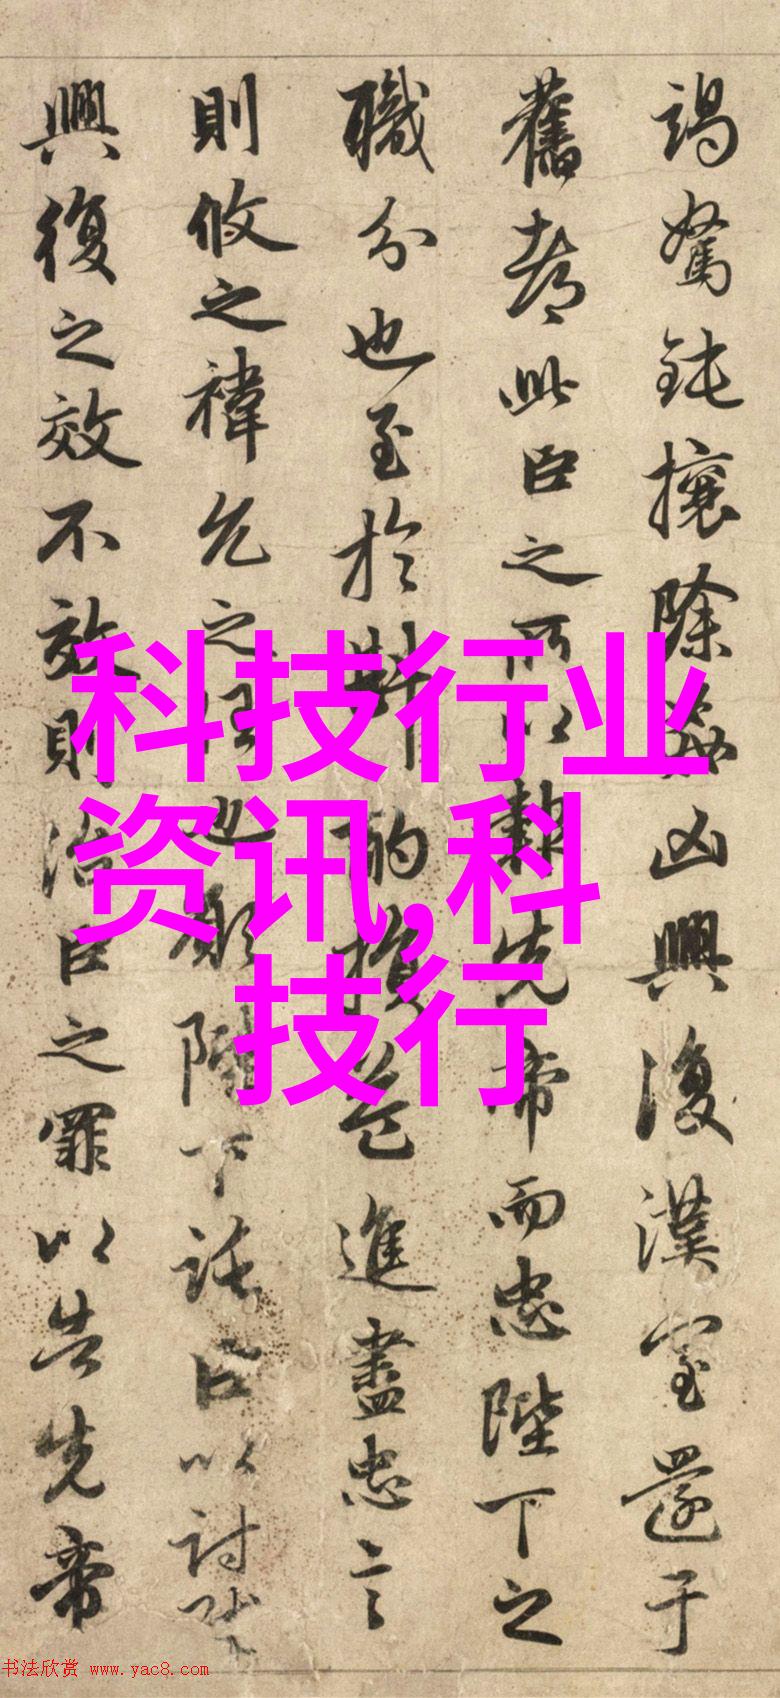 竭駑鈍攘除姦凶興復漢室還于
舊都此臣之所以報先帝而忠陛下之
職分也至於斟酌損益進盡忠言
則攸之褘允之任也願陛下託臣以討賊
興復之效不效則治臣之罪以告先帝
科技行业
资讯,科
技行
书法欣赏 www.yac8.com